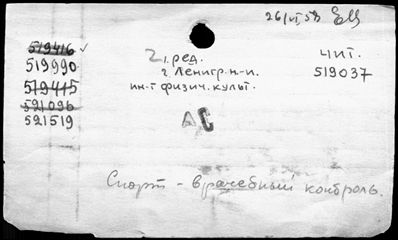 26/VI,58
519416 ✓
2, ред. чит.
519990
г. Ленигр. н.-и. 519037
519415
ин-т физич. культ.
521096
521519
АС
Спорт - врачебный контроль.